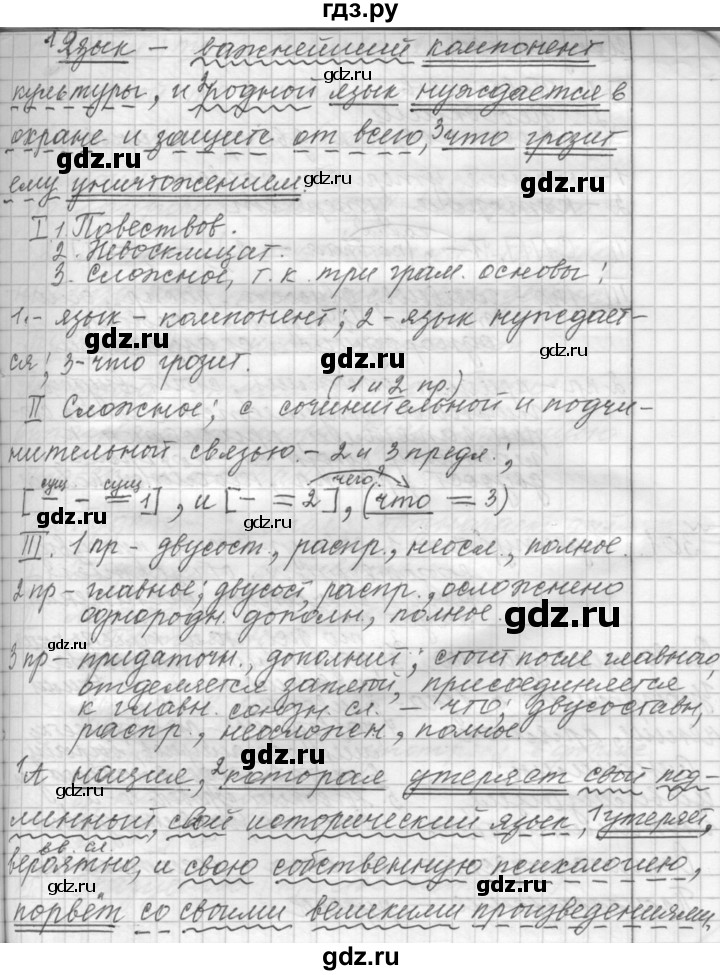 гдз.ру
¹Язык – важнейший компонент
культуры, и ²родной язык нуждается в
охране и защите от всего, ³что грозит
gdz.ru
ему уничтожением.
gdz.ru
gdz.ru
I 1. Повествов.
2. Невосклицат.
gdz.ru
3. Сложное, т. к. три грам. основы:
1. – язык – компонент; 2 – язык нуждает-
gdz.ru
ся; 3 – что грозит.
gdz.ru
gdz.ru
(1 и 2 пр.)
II Сложное; с сочинительной и подчи-
нительной связью – 2 и 3 предл.;
gdz.ru
сущ сущ чего?
[– – = 1], и [– = 2], (что = 3)
gdz.ru
III. 1 пр – двусост., распр., неосл., полное.
2 пр – главное; двусост, распр., осложнено
однородн. дополн., полное.
gdz.ru
gdz.ru
3 пр – придаточн., дополнит; стоит после главного,
отделяется запятой, присоединяется
к главн. союзн. сл. – что; двусоставн,
распр., неосложнен, полное
gdz.ru
¹А нация, ²которая утеряет свой под-
gdz.ru
линный, свой исторический язык, ¹утеряет,
вв. сл.
вероятно, и свою собственную психологию,
gdz.ru
gdz.ru
порвёт со своими великими произведениями,
gdz.ru